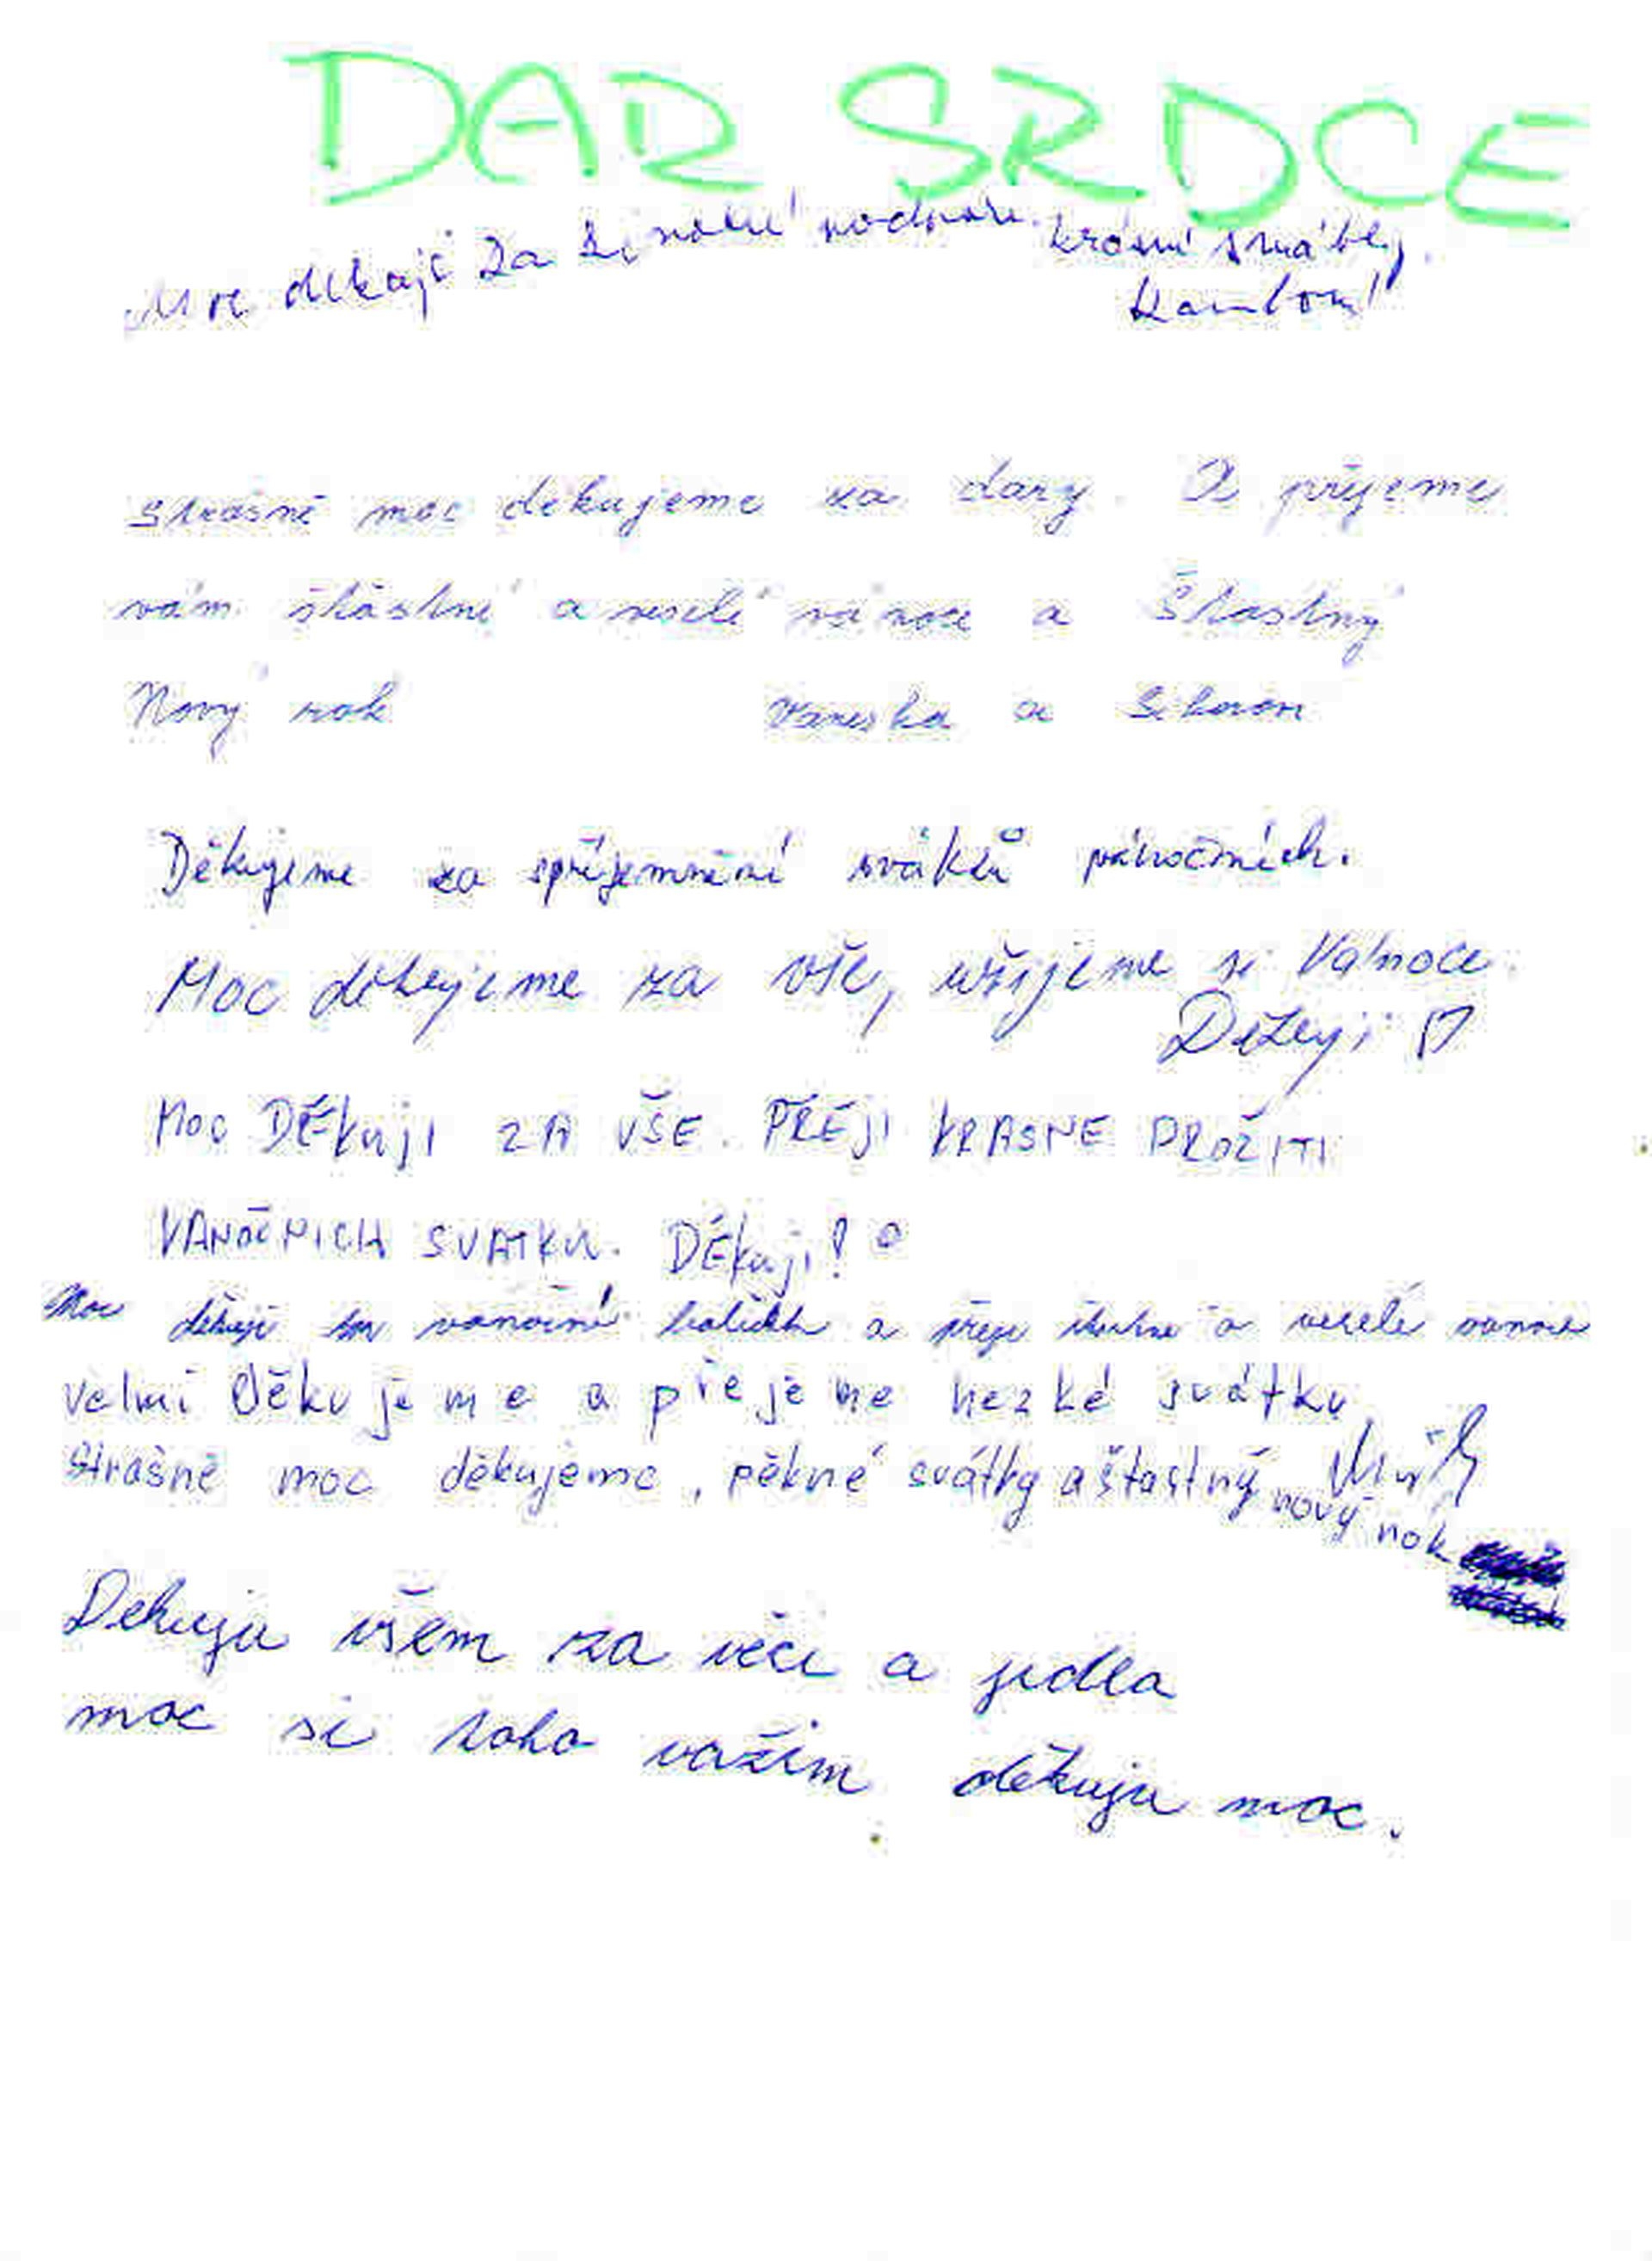 DAR SRDCE
Moc děkuji za krásné svátky.
Strašně moc děkujeme za dary. A přejeme
vám štastné a veselé vánoce a Štastný
Nový rok a
Děkujeme za spříjemnění svátků vánočních.
Moc děkujeme za vše, užijeme si Vánoce.
Děkuji
MOC DĚkuji ZA VŠE. PŘEJI KRASNE PROŽITI
VANOČNICH SVATKU. DĚkuji!
Moc děkuji za vanoční a přeji a veselé vanoce
Velmi Děkujeme a přejeme hezké svátky
Strašně moc děkujeme, pěkné svátky a štastný nový rok
Dekuju všem za věci a jidla
moc si toho važim děkuju moc.